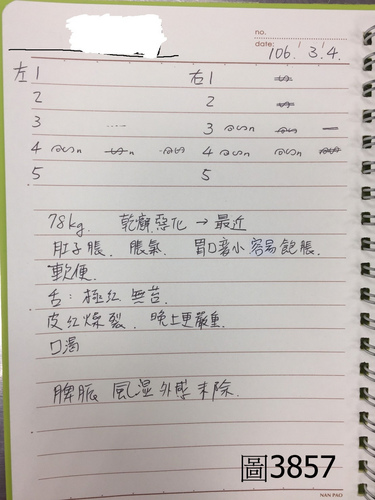 no.
date: 106. 3. 4.
左1 右1
2 2
3 3
4 4
5 5
78kg. 乾癬惡化 → 最近
肚子脹. 脹氣. 胃口變小 容易飽脹.
軟便.
舌: 極紅 無苔.
皮紅燥裂. 晚上更嚴重.
口渴
脾脈 風濕外感未除.
圖3857
NAN PAO